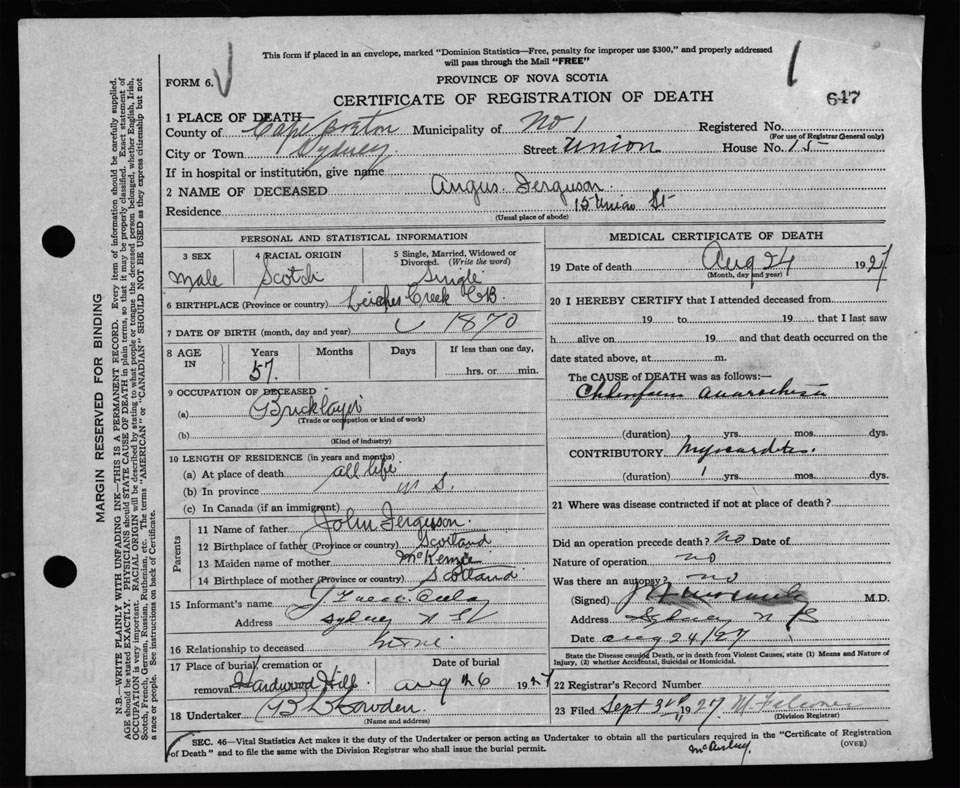 This form if placed in an envelope, marked "Dominion Statistics—Free, penalty for improper use $300," and properly addressed
will pass through the Mail "FREE"
FORM 6.
PROVINCE OF NOVA SCOTIA
CERTIFICATE OF REGISTRATION OF DEATH
647
1 PLACE OF DEATH
County of Cape Breton Municipality of No 1 Registered No.
(For use of Registrar General only)
City or Town Sydney Street Union House No. 15
If in hospital or institution, give name
2 NAME OF DECEASED Angus Ferguson
Residence 15 Union St
(Usual place of abode)
PERSONAL AND STATISTICAL INFORMATION
3 SEX 4 RACIAL ORIGIN 5 Single, Married, Widowed or
Divorced. (Write the word)
Male Scotch Single
6 BIRTHPLACE (Province or country) Leiches Creek CB.
7 DATE OF BIRTH (month, day and year) 1870
8 AGE IN Years Months Days If less than one day,
57 hrs. or min.
9 OCCUPATION OF DECEASED
(a) Bricklayer
(Trade or occupation or kind of work)
(b)
(Kind of industry)
10 LENGTH OF RESIDENCE (in years and months)
(a) At place of death all life
(b) In province
(c) In Canada (if an immigrant)
Parents
11 Name of father John Ferguson
12 Birthplace of father (Province or country) Scotland
13 Maiden name of mother McKenzie
14 Birthplace of mother (Province or country) Scotland
15 Informant's name
Address Sydney
16 Relationship to deceased none
17 Place of burial, cremation or Date of burial
removal Hardwood Hill Aug 26 1927
18 Undertaker
(Name and address)
MEDICAL CERTIFICATE OF DEATH
19 Date of death Aug 24 1927
(Month, day and year)
20 I HEREBY CERTIFY that I attended deceased from
19 to 19 that I last saw
h alive on 19 and that death occurred on the
date stated above, at m.
The CAUSE of DEATH was as follows:—
(duration) yrs. mos. dys.
CONTRIBUTORY Myocarditis
(duration) 1 yrs. mos. dys.
21 Where was disease contracted if not at place of death?
Did an operation precede death? no Date of
Nature of operation no
Was there an autopsy? no
(Signed) M.D.
Address Sydney
Date Aug 24/27
State the Disease causing Death, or in death from Violent Causes, state (1) Means and Nature of
Injury, (2) whether Accidental, Suicidal or Homicidal.
22 Registrar's Record Number
23 Filed Sept 3rd 1927
(Division Registrar)
SEC. 46—Vital Statistics Act makes it the duty of the Undertaker or person acting as Undertaker to obtain all the particulars required in the "Certificate of Registration
of Death" and to file the same with the Division Registrar who shall issue the burial permit.
(OVER)
MARGIN RESERVED FOR BINDING
N.B.—WRITE PLAINLY WITH UNFADING INK—THIS IS A PERMANENT RECORD. Every item of information should be carefully supplied.
AGE should be stated EXACTLY. PHYSICIANS should STATE CAUSE OF DEATH in plain terms, so that it may be properly classified. Exact statement of
OCCUPATION is very important. RACIAL ORIGIN will be described by stating to what people or tongue the deceased person belonged, whether English, Irish,
Scotch, French, German, Russian, Ruthenian, etc. The terms "AMERICAN" or "CANADIAN" SHOULD NOT BE USED as they express citizenship but not
a race or people. See instructions on back of Certificate.